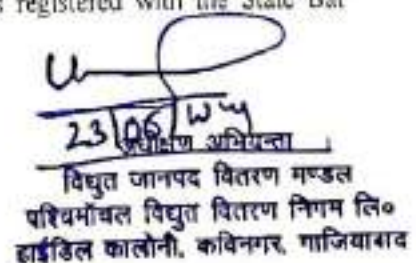 registered with the State Bar
23/06/
अधीक्षण अभियन्ता
विद्युत जानपद वितरण मण्डल
पश्चिमांचल विद्युत वितरण निगम लि०
हाईडिल कालोनी, कविनगर, गाजियाबाद